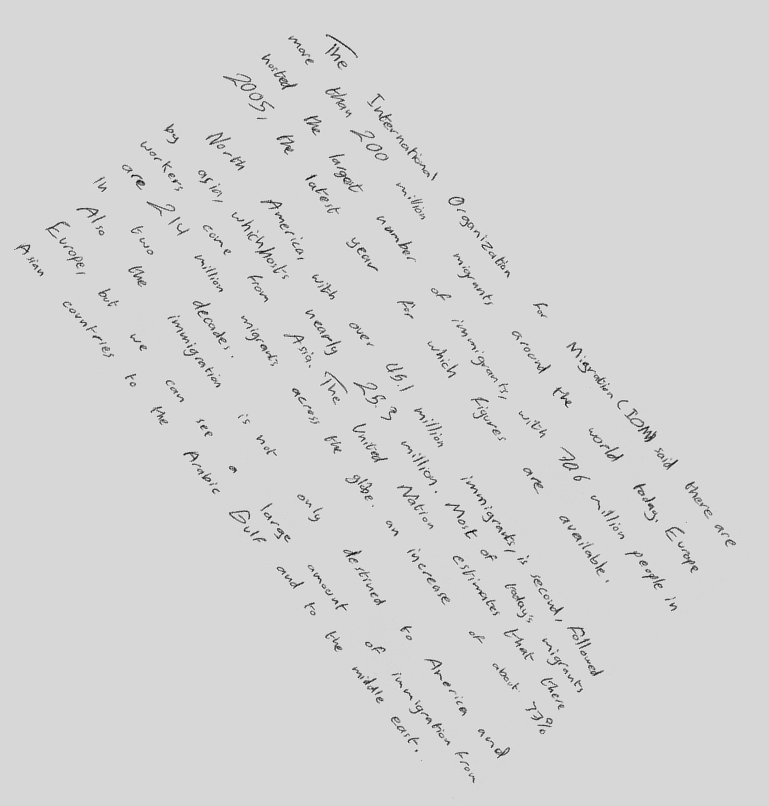 The International Organization for Migration (IOM) said there are
more than 200 million migrants around the world today. Europe
hosted the largest number of immigrants, with 706 million people in
2005, the latest year for which figures are available.
North America, with over 45.1 million immigrants, is second, followed
by asia, which hosts nearly 25.3 million. Most of today's migrants
workers come from Asia. The United Nation estimates that there
are 214 million migrants across the globe. an increase of about 37%
in two decades.
Also the immigration is not only destined to America and
Europe, but we can see a large amount of immigration from
Asian countries to the Arabic Gulf and to the middle east.